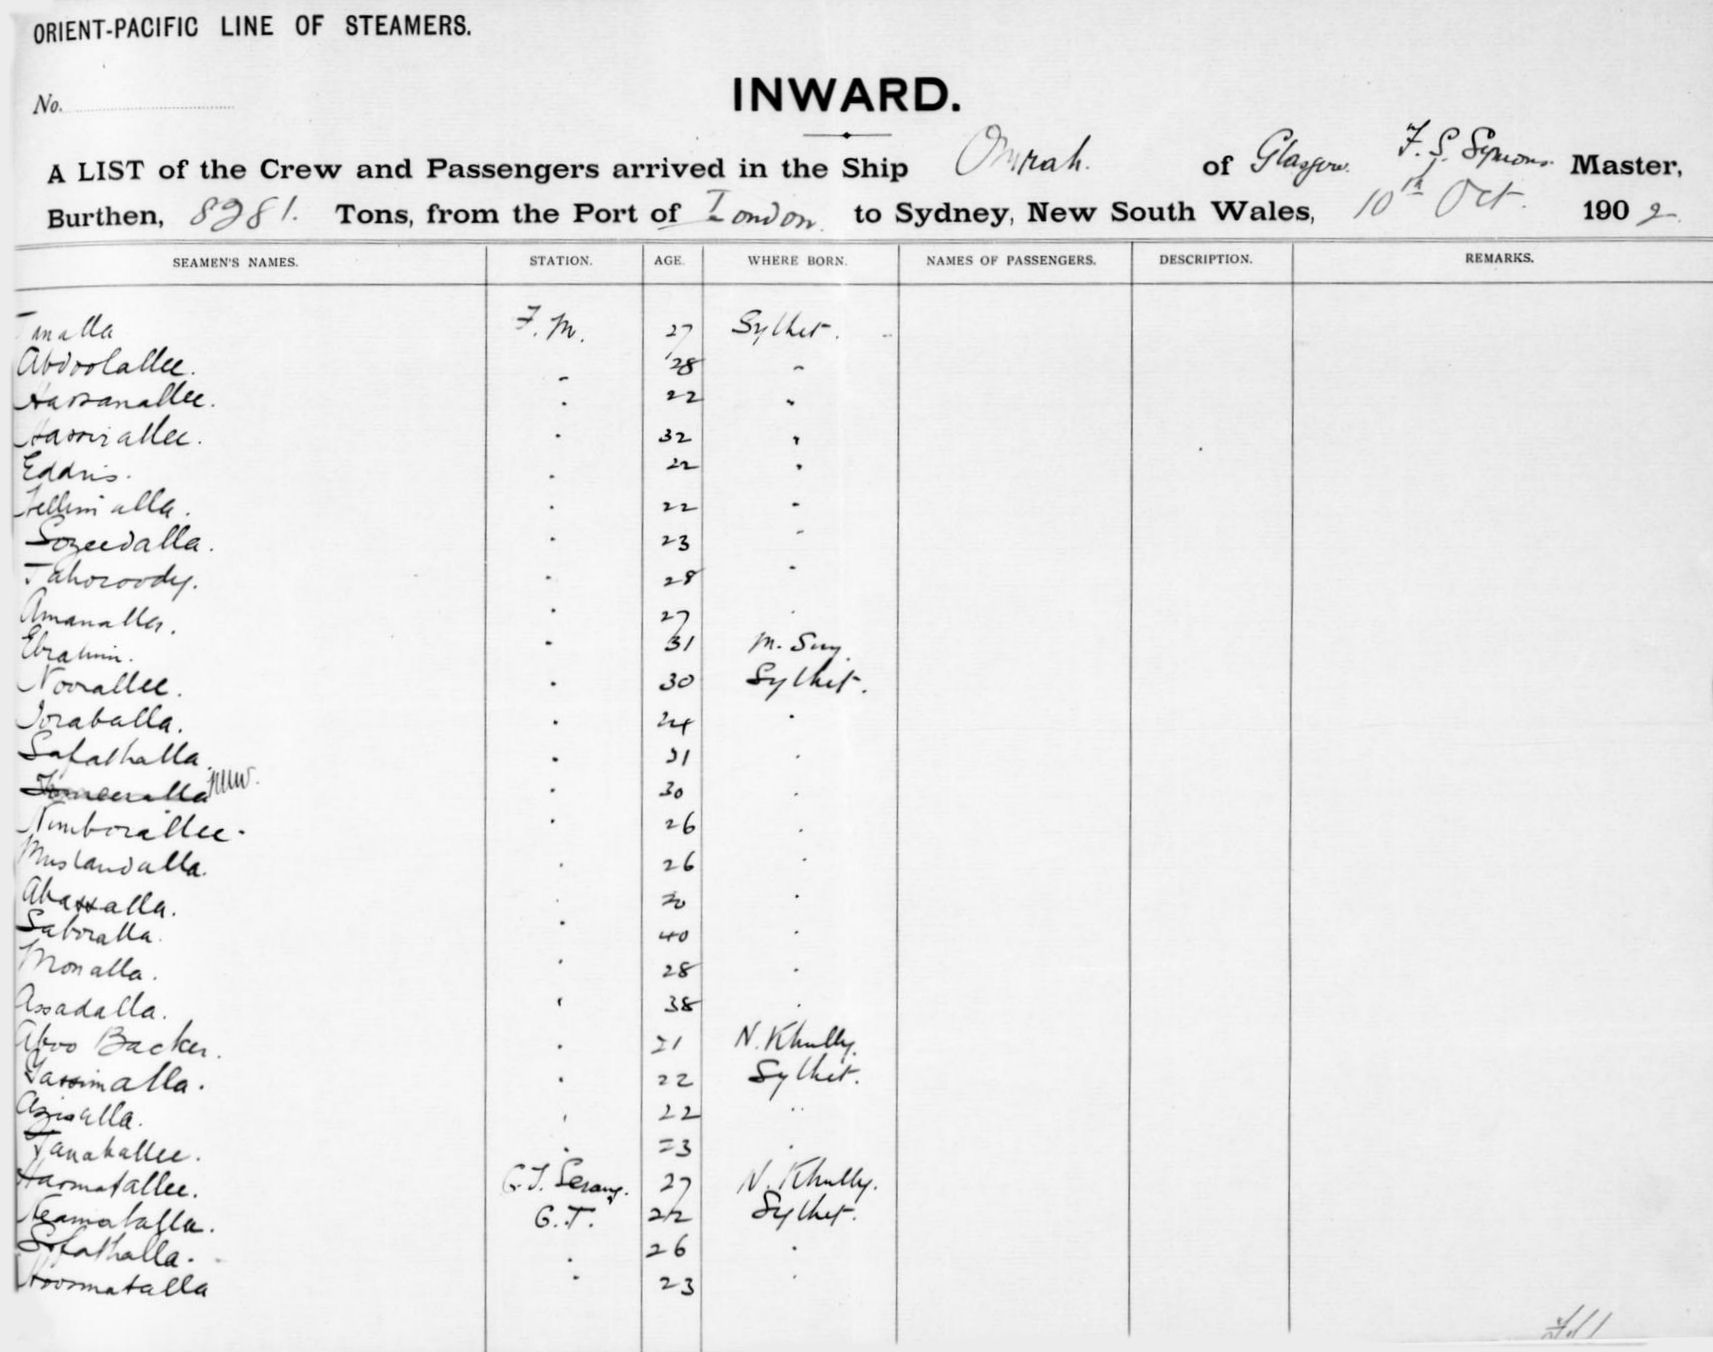 ORIENT-PACIFIC LINE OF STEAMERS.
No.
INWARD.
A LIST of the Crew and Passengers arrived in the Ship Omrah. of Glasgow. F. S. Symons. Master,
Burthen, 8281. Tons, from the Port of London. to Sydney, New South Wales, 10th Oct. 1902
SEAMEN'S NAMES. STATION. AGE. WHERE BORN. NAMES OF PASSENGERS. DESCRIPTION. REMARKS.
F. M. 27 Sylhet.
Abdoolallee. " 28 "
Hassanallee. " 22 "
" 32 "
Eddris. " 22 "
" 22 "
Sozeedalla. " 23 "
Tahoroody. " 28 "
Amanalla. " 27 "
Ebrahim. " 31
Noorallee. " 30 Sylhet.
Joraballa. " 24 "
Safathalla. " 31 "
" 30 "
Nimborallee. " 26 "
" 26 "
" "
Saboralla. " 40 "
Monalla. " 28 "
Assadalla. " 38 "
Aboo Backer. " 21 N. Khully.
Jassimalla. " 22 Sylhet.
Azisalla. " 22 "
Janakallee. " 23 "
G. T. Serang. 27 N. Khully.
G. T. 22 Sylhet.
Sofathalla. " 26 "
" 23 "